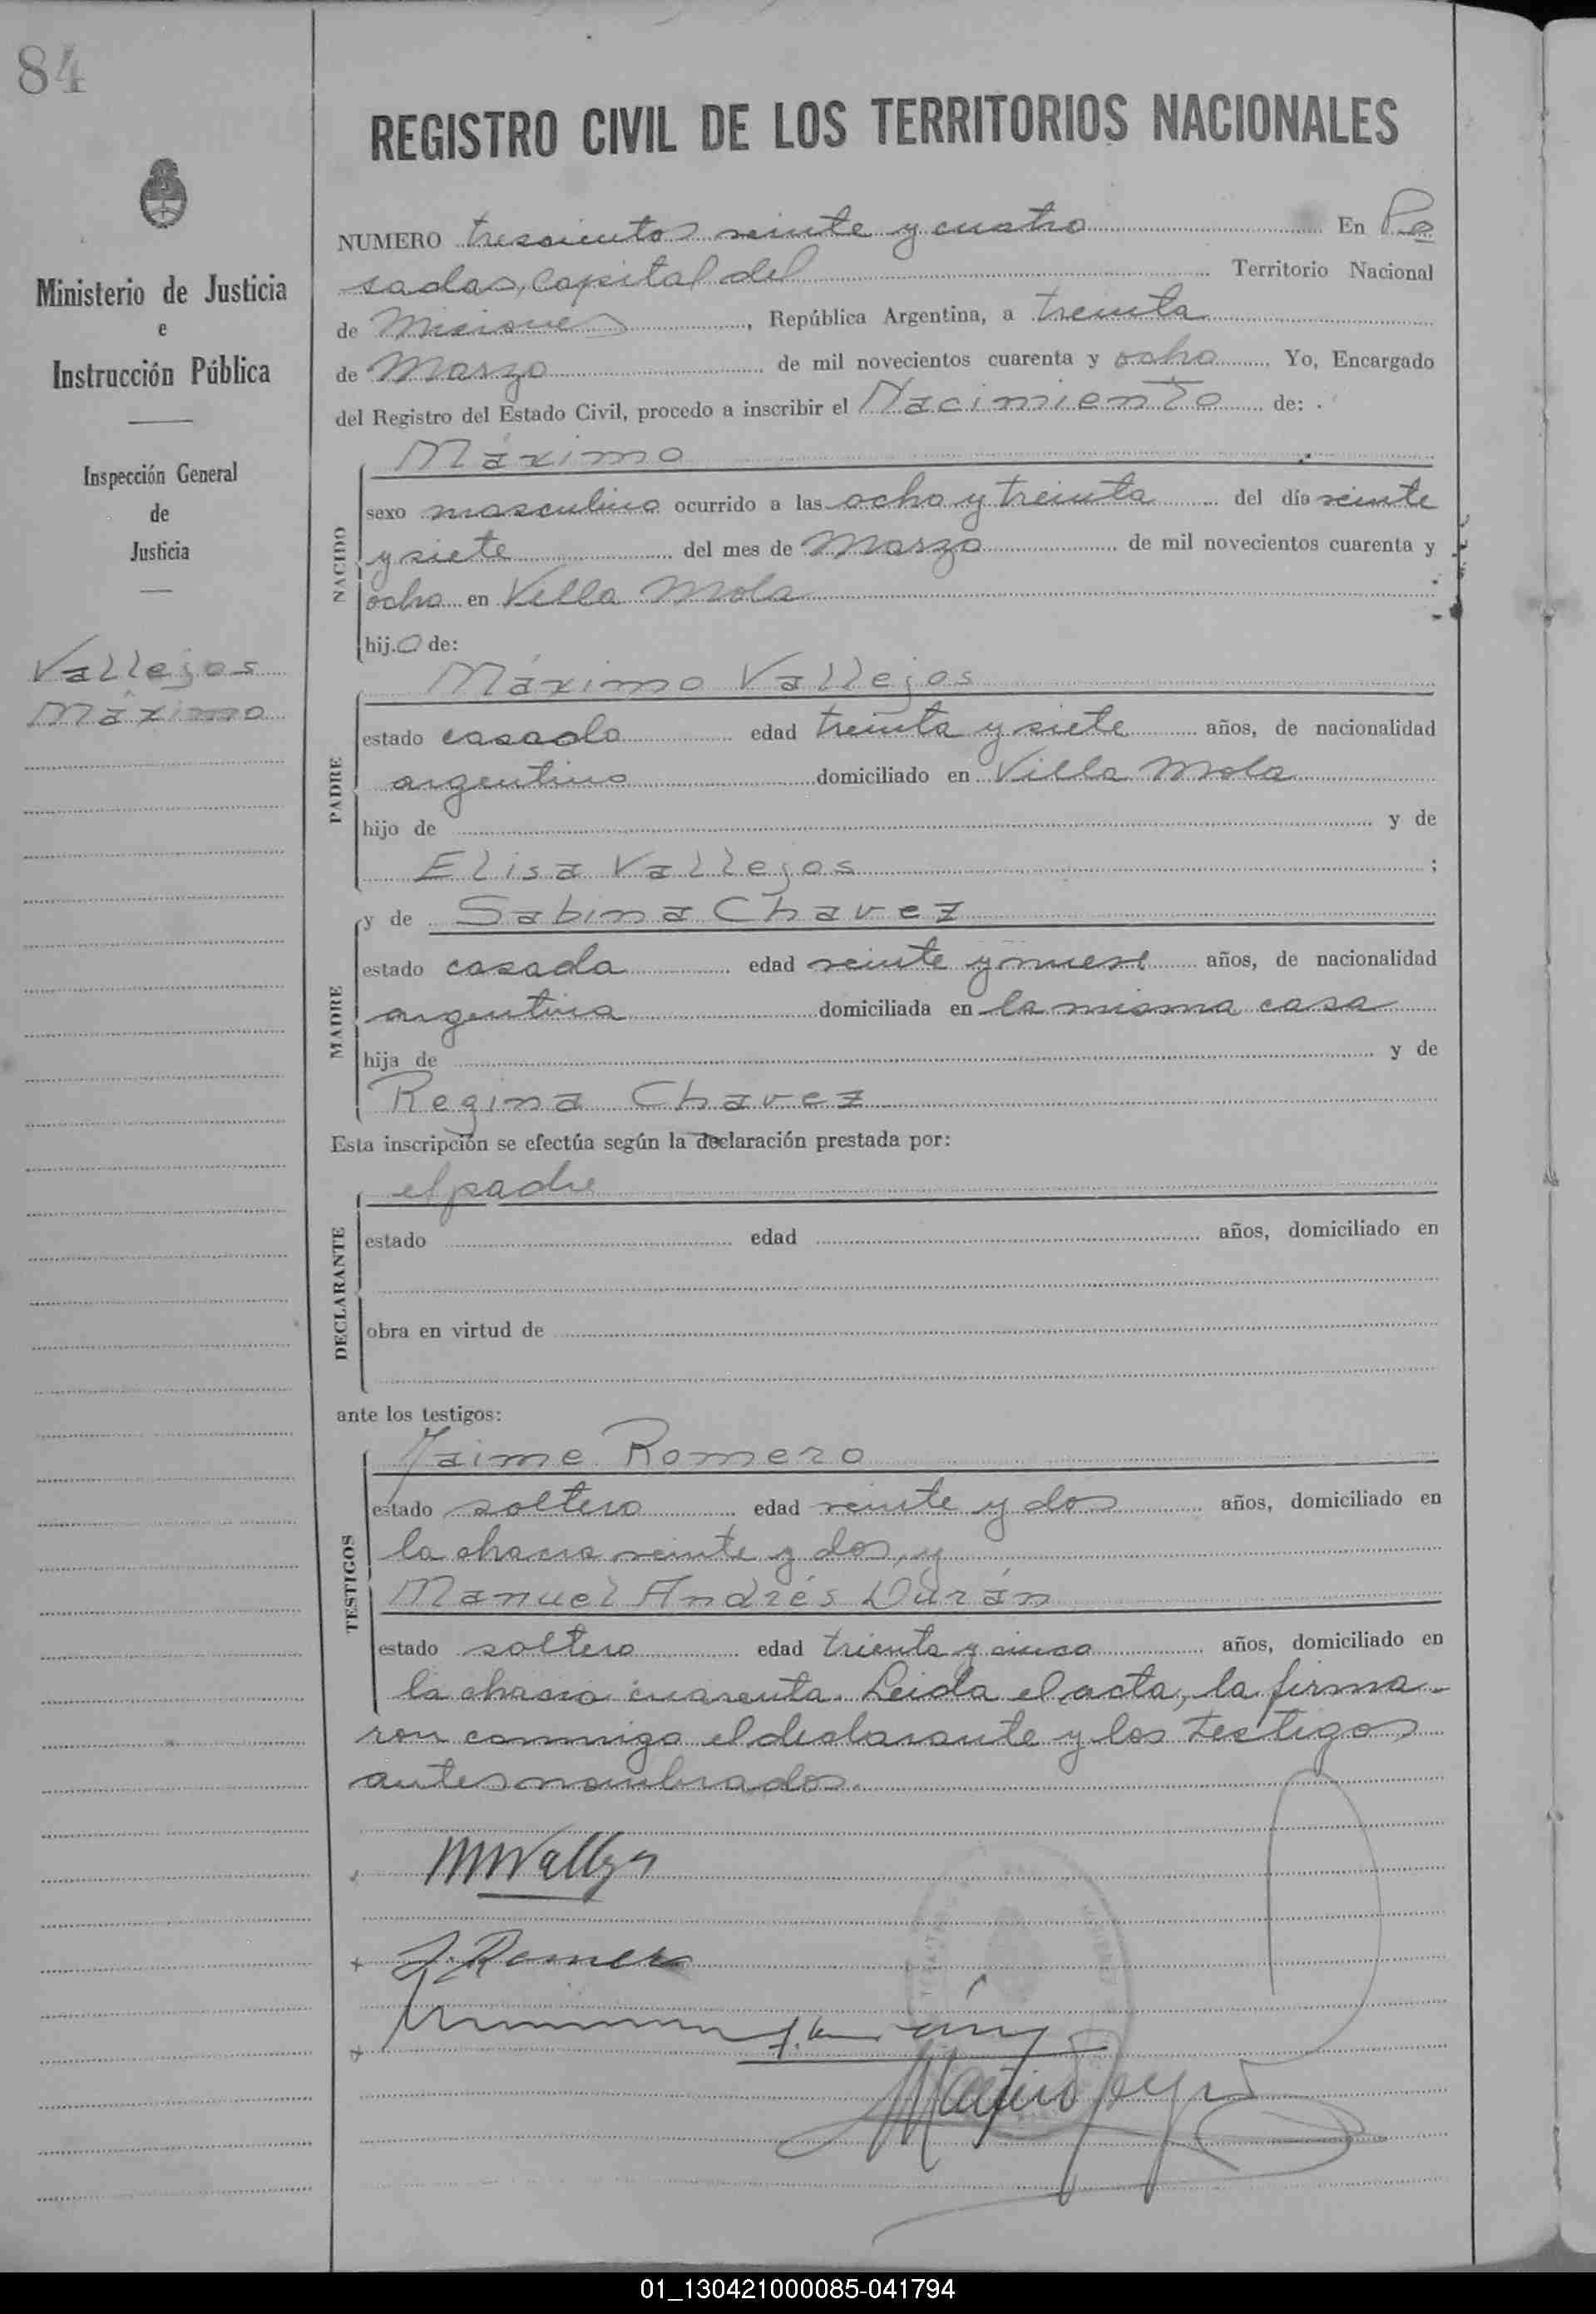 84
REGISTRO CIVIL DE LOS TERRITORIOS NACIONALES
Ministerio de Justicia
e
Instrucción Pública
Inspección General
de
Justicia
Vallejos
Máximo
NUMERO trescientos veinte y cuatro En Po
sadas, Capital del Territorio Nacional
de Misiones, República Argentina, a treinta
de Marzo de mil novecientos cuarenta y ocho Yo, Encargado
del Registro del Estado Civil, procedo a inscribir el Nacimiento de:
NACIDO
Máximo
sexo masculino ocurrido a las ocho y treinta del día veinte
y siete del mes de Marzo de mil novecientos cuarenta y
ocho en Villa Mola
hijo de:
PADRE
Máximo Vallejos
estado casado edad treinta y siete años, de nacionalidad
argentino domiciliado en Villa Mola
hijo de y de
Elisa Vallejos ;
MADRE
y de Sabina Chavez
estado casada edad veinte y nueve años, de nacionalidad
argentina domiciliada en la misma casa
hija de y de
Regina Chavez
Esta inscripción se efectúa según la declaración prestada por:
DECLARANTE
el padre
estado edad años, domiciliado en
obra en virtud de
ante los testigos:
TESTIGOS
Jaime Romero
estado soltero edad veinte y dos años, domiciliado en
la chacra veinte y dos, y
Manuel Andrés Durán
estado soltero edad trienta y cinco años, domiciliado en
la chacra cuarenta. Leida el acta, la firma-
ron conmigo el declarante y los testigos
antes nombrados.
MVallejos
J. Romero
01_130421000085-041794